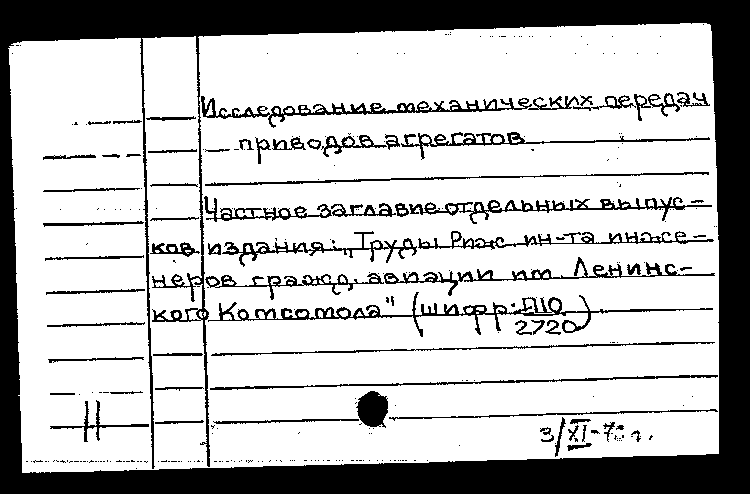 Исследование механических передач
приводов агрегатов.
Частное заглавие отдельных выпус-
ков издания: „Труды Риж. ин-та инже-
неров гражд. авиации им. Ленинс-
кого Комсомола" (шифр: П10
2720)
H
3/XI-